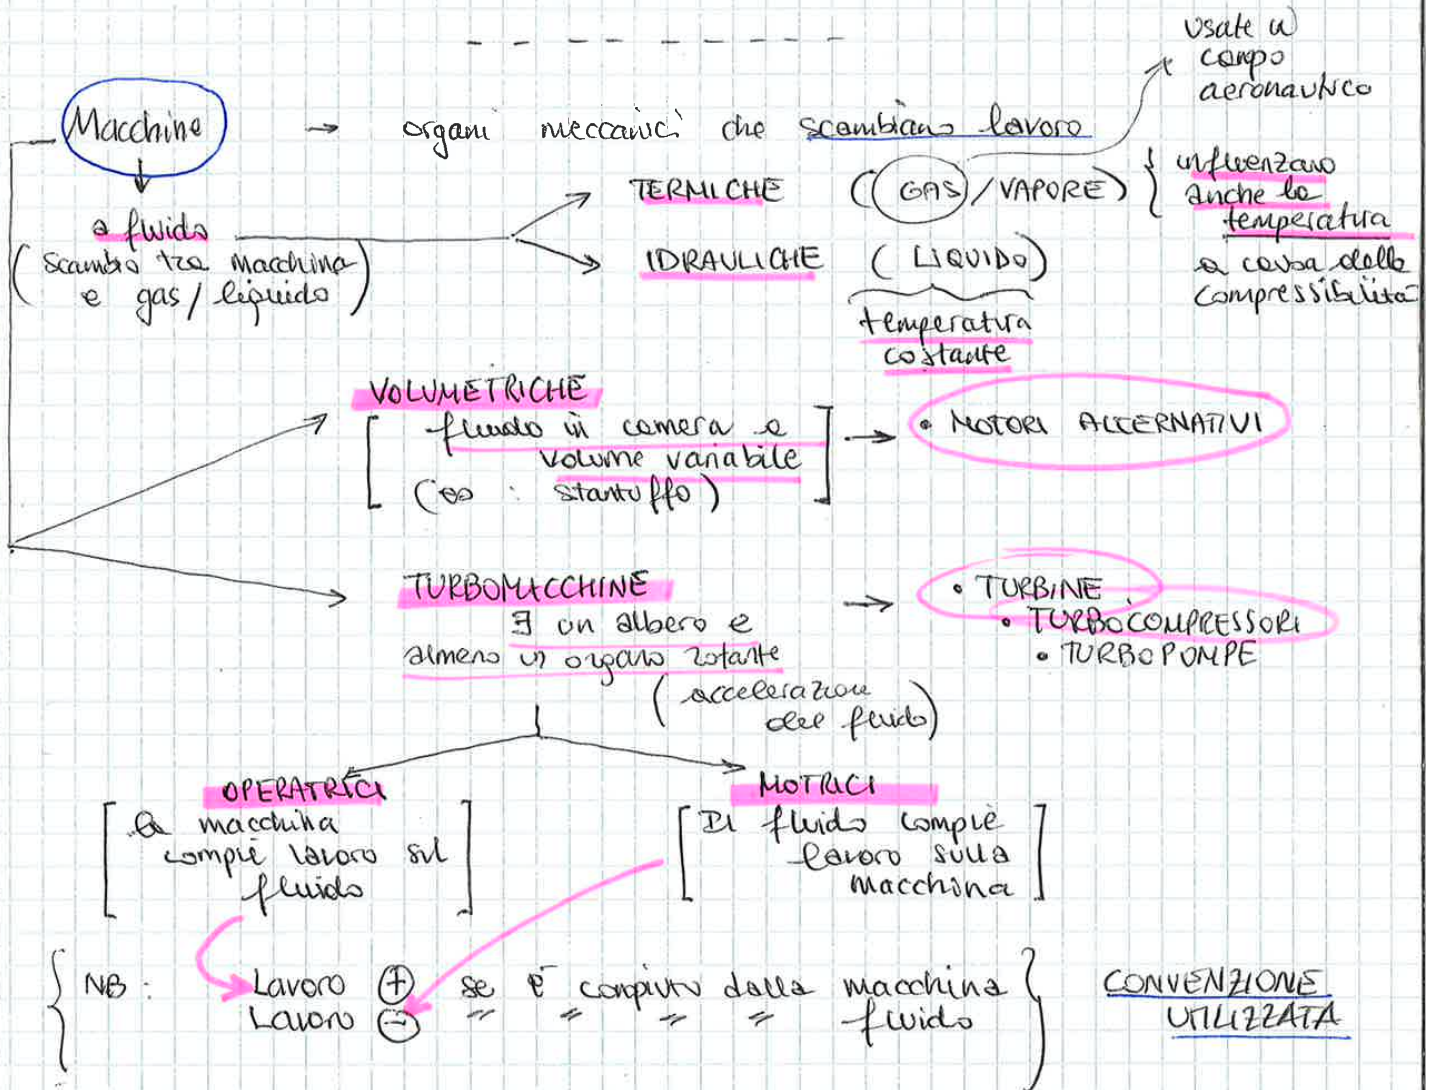 usate in
campo
aeronautico
Macchine → organi meccanici che scambiano lavoro
a fluido
(scambio tra macchina
e gas/liquido)
TERMICHE (GAS/VAPORE)
influenzano
anche la
temperatura
a causa della
compressibilità
IDRAULICHE (LIQUIDO)
temperatura
costante
VOLUMETRICHE
[fluido in camera a
volume variabile
(es : stantuffo)]
→ • MOTORI ALTERNATIVI
TURBOMACCHINE
∃ un albero e
almeno un organo rotante
(accelerazione
del fluido)
→ • TURBINE
• TURBOCOMPRESSORI
• TURBOPOMPE
OPERATRICI
[La macchina
compie lavoro sul
fluido]
MOTRICI
[Il fluido compie
lavoro sulla
macchina]
NB : Lavoro + se è compiuto dalla macchina
Lavoro - " " " " fluido
CONVENZIONE
UTILIZZATA